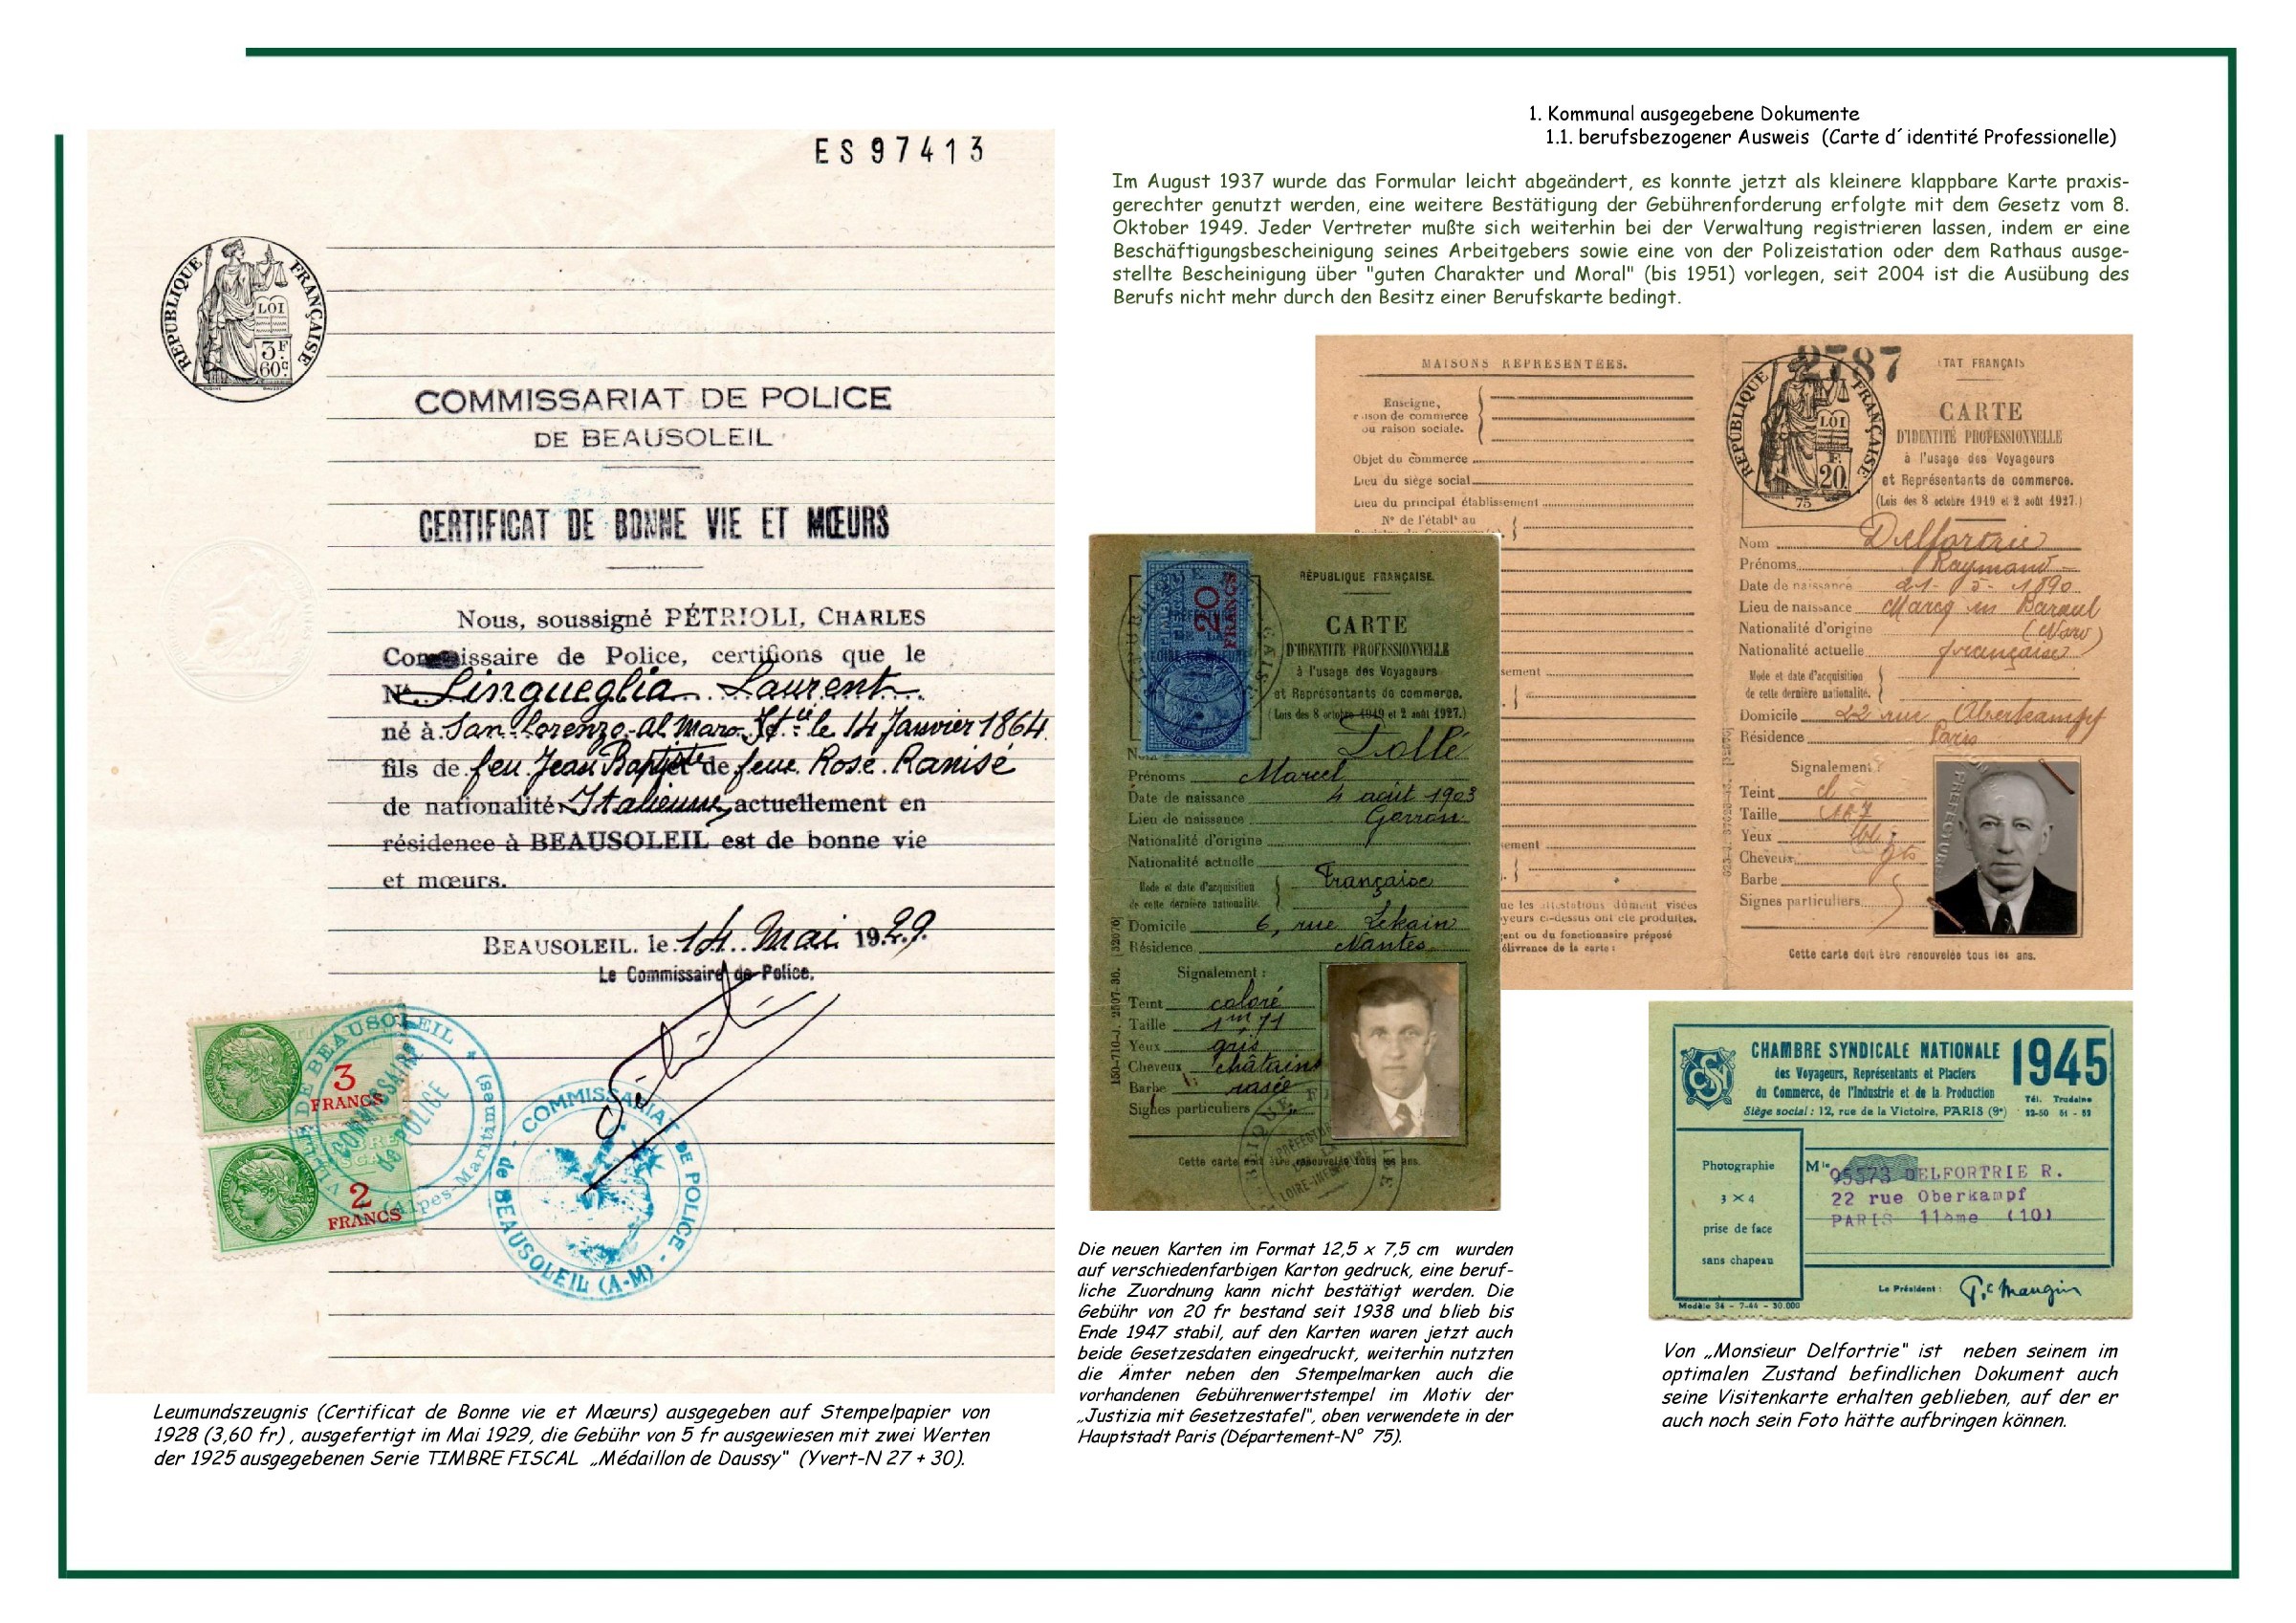 1. Kommunal ausgegebene Dokumente
1.1. berufsbezogener Ausweis (Carte d´identité Professionelle)
Im August 1937 wurde das Formular leicht abgeändert, es konnte jetzt als kleinere klappbare Karte praxis-
gerechter genutzt werden, eine weitere Bestätigung der Gebührenforderung erfolgte mit dem Gesetz vom 8.
Oktober 1949. Jeder Vertreter mußte sich weiterhin bei der Verwaltung registrieren lassen, indem er eine
Beschäftigungsbescheinigung seines Arbeitgebers sowie eine von der Polizeistation oder dem Rathaus ausge-
stellte Bescheinigung über "guten Charakter und Moral" (bis 1951) vorlegen, seit 2004 ist die Ausübung des
Berufs nicht mehr durch den Besitz einer Berufskarte bedingt.
ES 97413
RÉPUBLIQUE FRANÇAISE
LOI
3F
60c
COMMISSARIAT DE POLICE
DE BEAUSOLEIL
CERTIFICAT DE BONNE VIE ET MŒURS
Nous, soussigné PÉTRIOLI, CHARLES
Commissaire de Police, certifions que le
Né Lingueglia Laurent
né à San Lorenzo al Mare le 14 Janvier 1864
fils de feu Jean Baptiste et de feue Rose Ranisé
de nationalité Italienne, actuellement en
résidence à BEAUSOLEIL est de bonne vie
et mœurs.
BEAUSOLEIL. le 14 Mai 1929.
Le Commissaire de Police.
3
FRANCS
2
FRANCS
VILLE DE BEAUSOLEIL * (Alpes-Maritimes)
COMMISSAIRE
DE POLICE
COMMISSARIAT DE POLICE -
de BEAUSOLEIL (A-M)
Leumundszeugnis (Certificat de Bonne vie et Mœurs) ausgegeben auf Stempelpapier von
1928 (3,60 fr) , ausgefertigt im Mai 1929, die Gebühr von 5 fr ausgewiesen mit zwei Werten
der 1925 ausgegebenen Serie TIMBRE FISCAL „Médaillon de Daussy“ (Yvert-N 27 + 30).
MAISONS REPRESENTÉES.
Enseigne,
raison de commerce
ou raison sociale.
Objet du commerce
Lieu du siège social
Lieu du principal établissement
N° de l'établt au
2787
ÉTAT FRANÇAIS
RÉPUBLIQUE FRANÇAISE
LOI
F.
20.
75
CARTE
D'IDENTITÉ PROFESSIONNELLE
à l'usage des Voyageurs
et Représentants de commerce.
(Lois des 8 octobre 1919 et 2 août 1927.)
Nom Delfortrie
Prénoms Raymond
Date de naissance 21-5-1890
Lieu de naissance Marcq en Baroeul
Nationalité d'origine (Nord)
Nationalité actuelle française
Mode et date d'acquisition
de cette dernière nationalité.
Domicile 22 rue Oberkampf
Résidence Paris
Signalement :
Teint cl
Taille 1m67
Yeux
Cheveux gts
Barbe
Signes particuliers
Cette carte doit être renouvelée tous les ans.
ssement
sement
que les attestations dûment visées
yeurs ci-dessus ont été produites.
gent ou du fonctionnaire préposé
élivrance de la carte :
20
FRANCS
RÉPUBLIQUE FRANÇAISE.
CARTE
D'IDENTITÉ PROFESSIONNELLE
à l'usage des Voyageurs
et Représentants de commerce.
(Lois des 8 octobre 1919 et 2 août 1927.)
Nom Dollé
Prénoms Marcel
Date de naissance 4 août 1903
Lieu de naissance Gorron
Nationalité d'origine
Nationalité actuelle
Mode et date d'acquisition
de cette dernière nationalité.
Française
Domicile 6, rue Lekain
Résidence Nantes
Signalement :
Teint coloré
Taille 1m,71
Yeux gris
Cheveux châtains
Barbe rasée
Signes particuliers
Cette carte doit être renouvelée tous les ans.
Die neuen Karten im Format 12,5 x 7,5 cm wurden
auf verschiedenfarbigen Karton gedruck, eine beruf-
liche Zuordnung kann nicht bestätigt werden. Die
Gebühr von 20 fr bestand seit 1938 und blieb bis
Ende 1947 stabil, auf den Karten waren jetzt auch
beide Gesetzesdaten eingedruckt, weiterhin nutzten
die Ämter neben den Stempelmarken auch die
vorhandenen Gebührenwertstempel im Motiv der
„Justizia mit Gesetzestafel“, oben verwendete in der
Hauptstadt Paris (Département-N° 75).
CHAMBRE SYNDICALE NATIONALE 1945
des Voyageurs, Représentants et Placiers
du Commerce, de l'Industrie et de la Production
Siège social : 12, rue de la Victoire, PARIS (9e)
Tél. Trudaine
22-50 51 - 52
Photographie
3 x 4
prise de face
sans chapeau
Mle
95573 DELFORTRIE R.
22 rue Oberkampf
PARIS 11ème (10)
Le Président : P. Mangin
Modèle 34 - 7-44 - 30.000
Von „Monsieur Delfortrie“ ist neben seinem im
optimalen Zustand befindlichen Dokument auch
seine Visitenkarte erhalten geblieben, auf der er
auch noch sein Foto hätte aufbringen können.